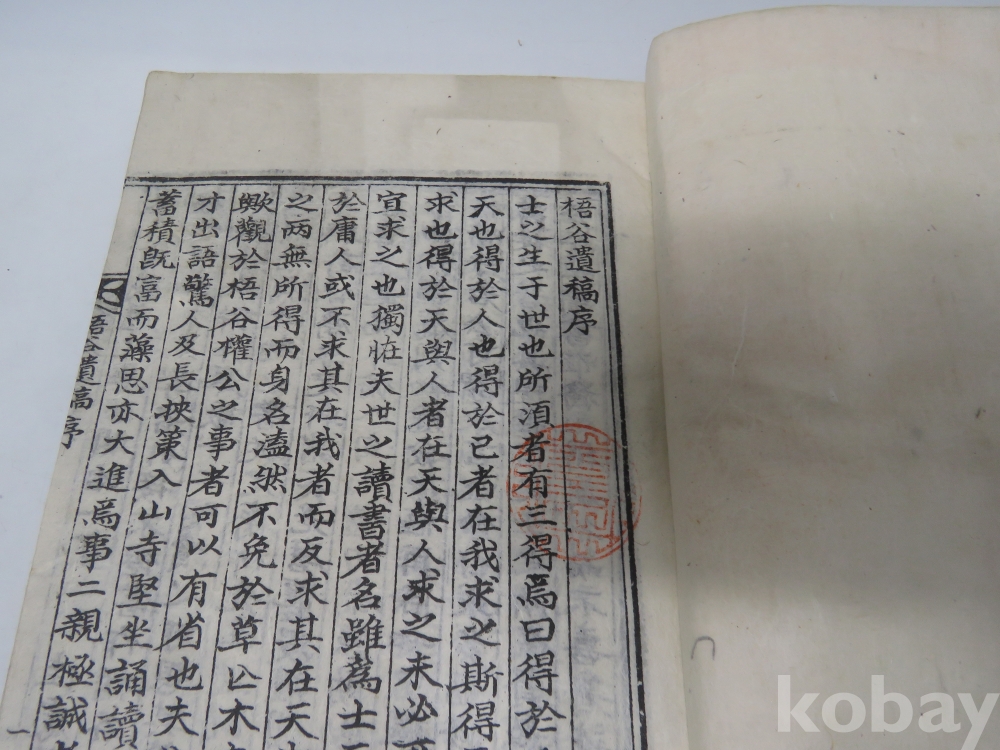 梧谷遺稿序
士之生于世也所湏者有三得焉曰得於
天也得於人也得於己者在我求之斯得
求也得於天與人者在天與人求之未必
宜求之也獨
夫世之讀書者名雖爲士
於庸人或不求其在我者而反求其在天
之兩無所得而身名溘然不免於草亡木
歟觀於梧谷權公之事者可以有省也夫
才出語驚人及長挾策入山寺堅坐誦讀
蓄積旣富而藻思亦大進爲事二親極誠
梧谷遺稿序
一
kobay